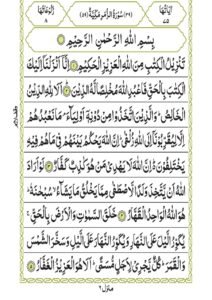 اٰیَاتُهَا ٧٥ (٣٩) سُوْرَةُ الزُّمَرِ مَكِّيَّةٌ (٥٩) رُكُوْعَاتُهَا ٨
بِسْمِ اللهِ الرَّحْمٰنِ الرَّحِيْمِ
تَنْزِيْلُ الْكِتٰبِ مِنَ اللهِ الْعَزِيْزِ الْحَكِيْمِ ١ اِنَّاۤ اَنْزَلْنَاۤ اِلَيْكَ
الْكِتٰبَ بِالْحَقِّ فَاعْبُدِ اللهَ مُخْلِصًا لَّهُ الدِّيْنَ ٢ اَلَا لِلّٰهِ الدِّيْنُ
الْخَالِصُ ؕ وَالَّذِيْنَ اتَّخَذُوْا مِنْ دُوْنِهٖۤ اَوْلِيَآءَ ۘ مَا نَعْبُدُهُمْ
اِلَّا لِيُقَرِّبُوْنَاۤ اِلَى اللهِ زُلْفٰى ؕ اِنَّ اللهَ يَحْكُمُ بَيْنَهُمْ فِيْ مَا هُمْ فِيْهِ
يَخْتَلِفُوْنَ ؕ۬ اِنَّ اللهَ لَا يَهْدِيْ مَنْ هُوَ كٰذِبٌ كَفَّارٌ ٣ لَوْ اَرَادَ
اللهُ اَنْ يَّتَّخِذَ وَلَدًا لَّاصْطَفٰى مِمَّا يَخْلُقُ مَا يَشَآءُ ۙ سُبْحٰنَهٗ ؕ
هُوَ اللهُ الْوَاحِدُ الْقَهَّارُ ٤ خَلَقَ السَّمٰوٰتِ وَالْاَرْضَ بِالْحَقِّ ۚ
يُكَوِّرُ الَّيْلَ عَلَى النَّهَارِ وَيُكَوِّرُ النَّهَارَ عَلَى الَّيْلِ وَسَخَّرَ الشَّمْسَ
وَالْقَمَرَ ؕ كُلٌّ يَّجْرِيْ لِاَجَلٍ مُّسَمًّى ؕ اَلَا هُوَ الْعَزِيْزُ الْغَفَّارُ ٥
منزل ٦